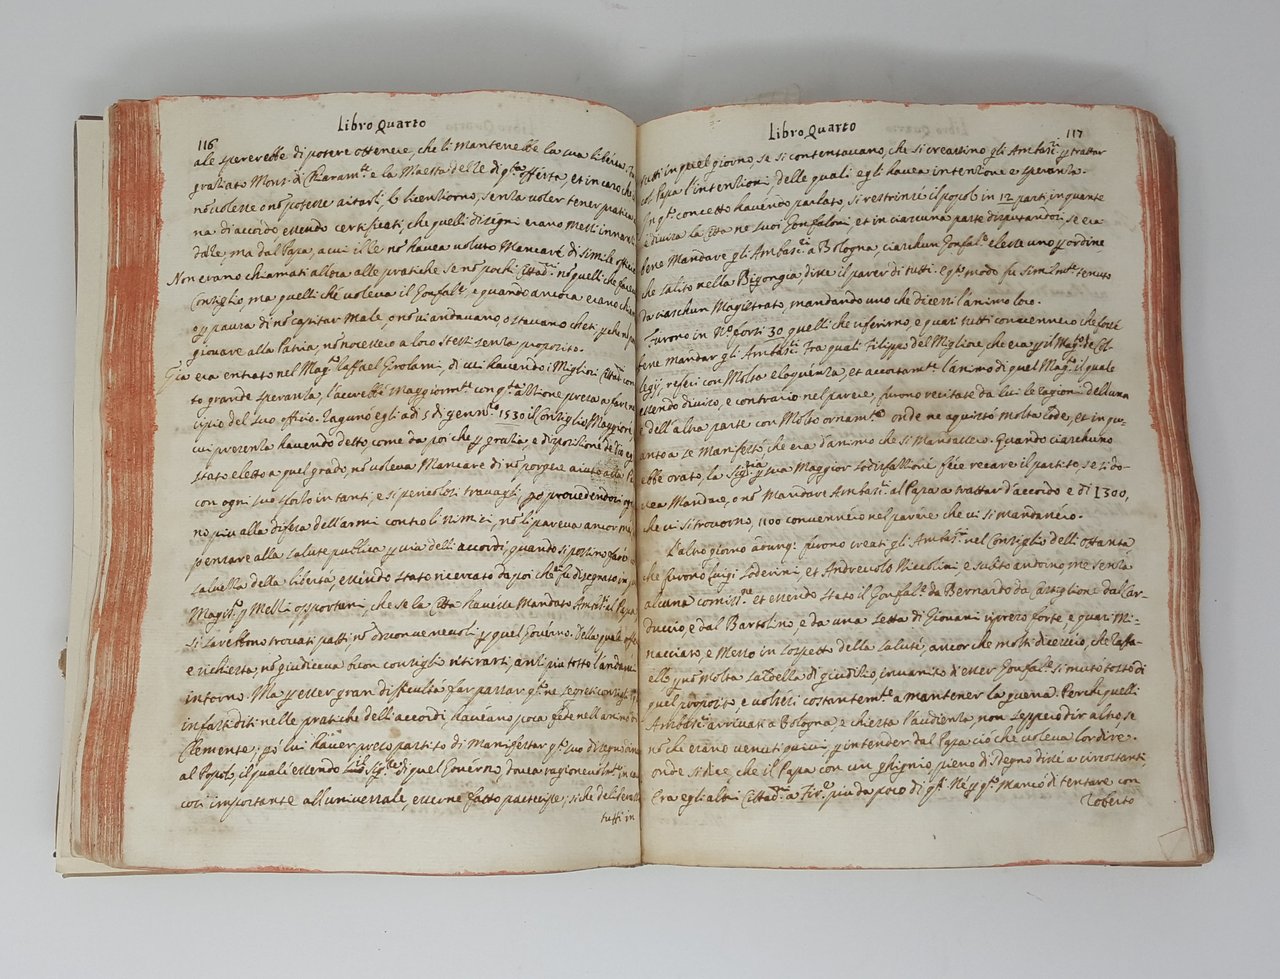 116
Libro Quarto
ale spererebbe di potere ottenere, che li mantenesse la sua libertà
gratiato Mons. di e la Maestà delle di q.ta offerta, et in caso che
nõ volesse o nõ potesse aitarli, lo licentiorno, senza voler tener pratica
na di accordo essendo certificati, che quelli disegni erano messi innanzi
dalle, ma dal Papa, a cui il Re nõ havea voluto Mancare di simile offitio
Non erano chiamati allora alle pratiche se nõ pochi Cittad.i nõ quelli che
Consiglio, ma quelli che voleva il Gonfal.e, e quando ancora erano
o p paura di nõ capitar male, o nõ vi andavano, o stavano cheti
giovare alla Patria, nõ nocessero a loro stessi senza proposito.
Già era entrato nel Mag.to Raffael Girolami, di cui havendo i Migliori Cittad.i con
to grande speranza, l'accrebbe maggiorm.te con q.ta attione presa a fare
cipio del suo offitio. Ragunò egli a dì 5 di genn.ro 1530 il Consiglio Maggiore
cui presenza havendo detto, come da poi che p gratia, e dispositione
stato eletto a quel grado, nõ voleva Mancare di nõ porgere aiuto alla
con ogni suo sforzo in tanti, e sì pericolosi travagli, però provedendosi
no più alla difesa dell'armi contro li nimici, nõ li pareva ancor
pensare alla salute publica p via delli accordi, quando si possino fare
salvezza della libertà, essendo stato ricercato da poi che fu disegnato in
Magist.o p Messi opportuni, che se la Città havesse Mandato Amb.ri al Papa
si sarebbono trovati patti nõ disconvenevoli p quel Governo. Della quale
e richiesta, nõ giudicava buon consiglio ritirarsi, anzi più tosto l'andarvi
intorno. Ma p esser gran difficultà a far passar q.ta ne segreti consigli
infastiditi nelle pratiche delli accordi havéano poca fede nell'animo di
Clemente; però lui haver preso partito di Manifestar q.to suo disegno
al Popolo, il quale essendo Sig.re di quel Governo, dovea ragionevolm.te in
così importante all'universale, esserne fatto partecipe, sì che deliberasse
tutti in
Libro Quarto
117
tutti in quel giorno, se si contentavano, che si creassino gli Ambasc.ri p trattar
col Papa l'intentioni, delle quali egli havea intentione e speranza.
In q.to concetto havendo parlato si restrinse il popolo in 12 parti, in quante
è divisa la Città ne suoi Gonfaloni, et in ciascuna parte disputandosi, se era
bene Mandare gli Ambasc.ri a Bologna, ciaschun Gonfal.e elesse uno p ordine
che salito nella Bigongia, disse il parer di tutti. E q.to modo fu similm.te tenuto
da ciaschun Magistrato, mandando uno che dicessi l'animo loro.
Furono in N.o forsi 30 quelli che riferirno, e quasi tutti convennero che fosse
bene mandar gli Ambasc.ri. Tra quali Filippo del Migliore, che era p il Mag.to de Col-
legi, riferì con Molta eloquenza, et accortam.te l'animo di quel Mag.to il quale
essendo diviso, e contrario nel parere, furono recitate da lui le ragioni dell'una
e dell'altra parte con Molto ornam.to onde ne aquistò molta lode, et in qu-
anto a se Manifestò, che era d'animo che si Mandassero. Quando ciaschuno
ebbe orato, la Sig.ria p sua Maggior sodisfattione fece recare il partito, se si do-
vea Mandare, o nõ Mandare Ambasc.ri al Papa a trattar d'accordo e di 1300,
che vi si trovorno, 1100 convennero nel parere che vi si mandassero.
L'altro giorno furono creati gli Ambasc.ri nel Consiglio delli Ottanta
che furono Luigi Soderini, et Andreuolo Niccolini e subito andorno, ma senza
alcuna comiss.ne et essendo stato il Gonfal.e da Bernardo da Castiglione dal Car-
duccio, e dal Bartolino, e da una setta di Giovani ripreso forte e quasi Mi-
nacciato, e Messo in sospetto della salute, ancor che molti dicessero, che Raffa-
ello p nõ molta saldezza di giuditio, con animo d'esser Gonfal.re si mutò tosto di
quel proposito, e voltosi costantem.te a mantener la guerra. Perchè quelli
Ambasc.ri arrivati a Bologna, e chiesta l'audienza non seppero dir altro, se
nõ che erano venuti quivi p intender dal Papa ciò che voleva lor dire.
onde si dice, che il Papa con un ghignio pieno di sdegno disse a circostanti
Era egli altri Cittad.i a Fir.e più da poco di q.ti. Né p q.to mancò di tentare con
Roberto